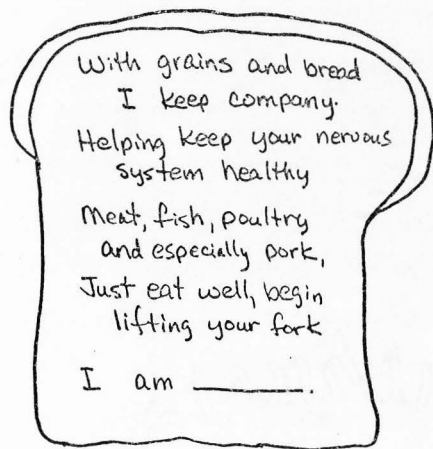 With grains and bread
I keep company.
Helping keep your nervous
system healthy
Meat, fish, poultry
and especially pork,
Just eat well, begin
lifting your fork
I am ________.